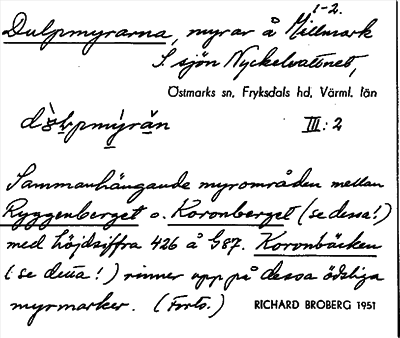 1-2.
Dulpmyrarna, myrar å Millmark
S. sjön Nyckelvattnet,
Östmarks sn, Fryksdals hd, Värml. län
III: 2
Sammanhängande myrområden mellan
Ryggenberget o. Koronberget (se dessa!)
med höjdsiffra 426 å G87. Koronbäcken
(se detta!) rinner upp på dessa ödsliga
myrmarker. (Forts.)
RICHARD BROBERG 1951